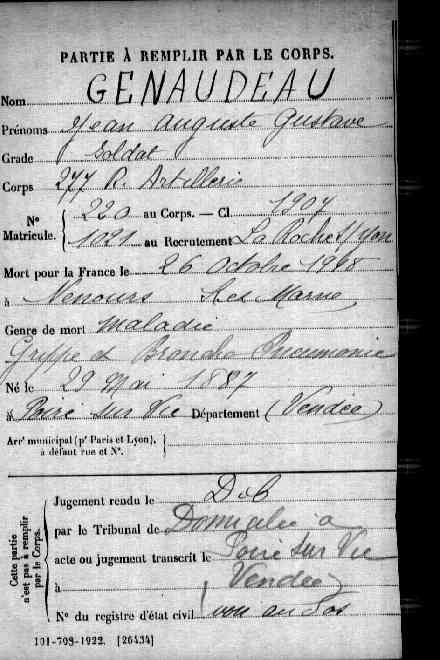 PARTIE À REMPLIR PAR LE CORPS.
Nom GENAUDEAU
Prénoms Jean Auguste Gustave
Grade Soldat
Corps 277 R. Artillerie
N° Matricule. { 220 au Corps. — Cl. 1907
1021 au Recrutement La Roche s/ Yon
Mort pour la France le 26 Octobre 1918
à Nemours Set Marne
Genre de mort maladie
Grippe et Broncho Pneumonie
Né le 29 Mai 1887
à Poiré sur Vie Département (Vendée)
Arrt municipal (pr Paris et Lyon), à défaut rue et N°.
Cette partie n'est pas à remplir par le Corps.
Jugement rendu le Dcb
par le Tribunal de Domicilié à
acte ou jugement transcrit le Poiré sur Vie
à Vendée
N° du registre d'état civil voir au dos
101-708-1922. [26434]